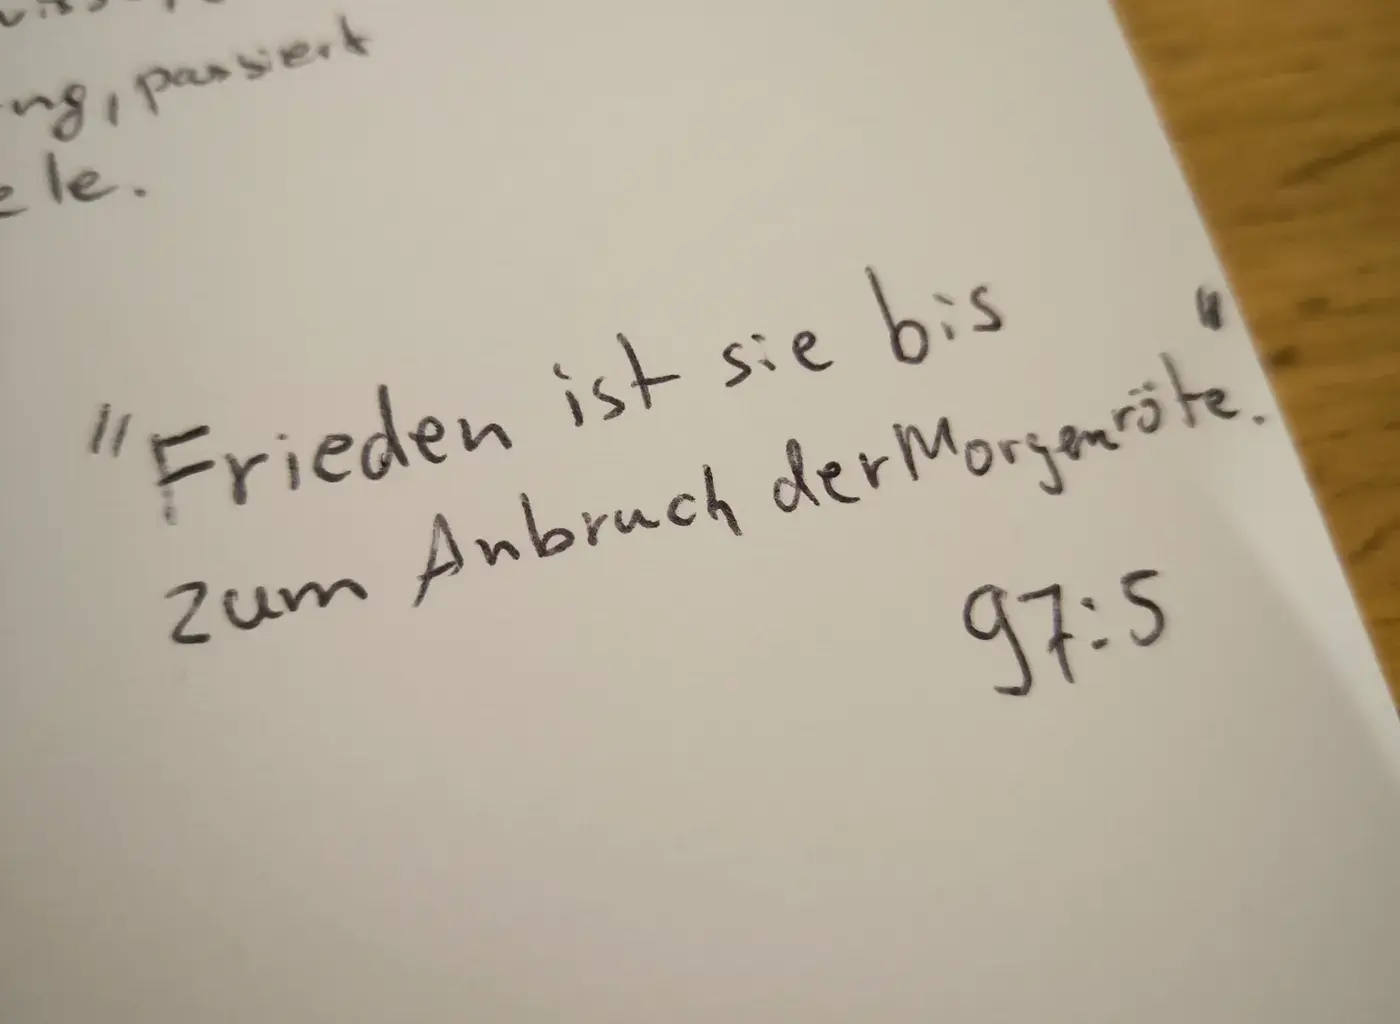 ng, passiert
le.
"Frieden ist sie bis
zum Anbruch der Morgenröte."
97:5